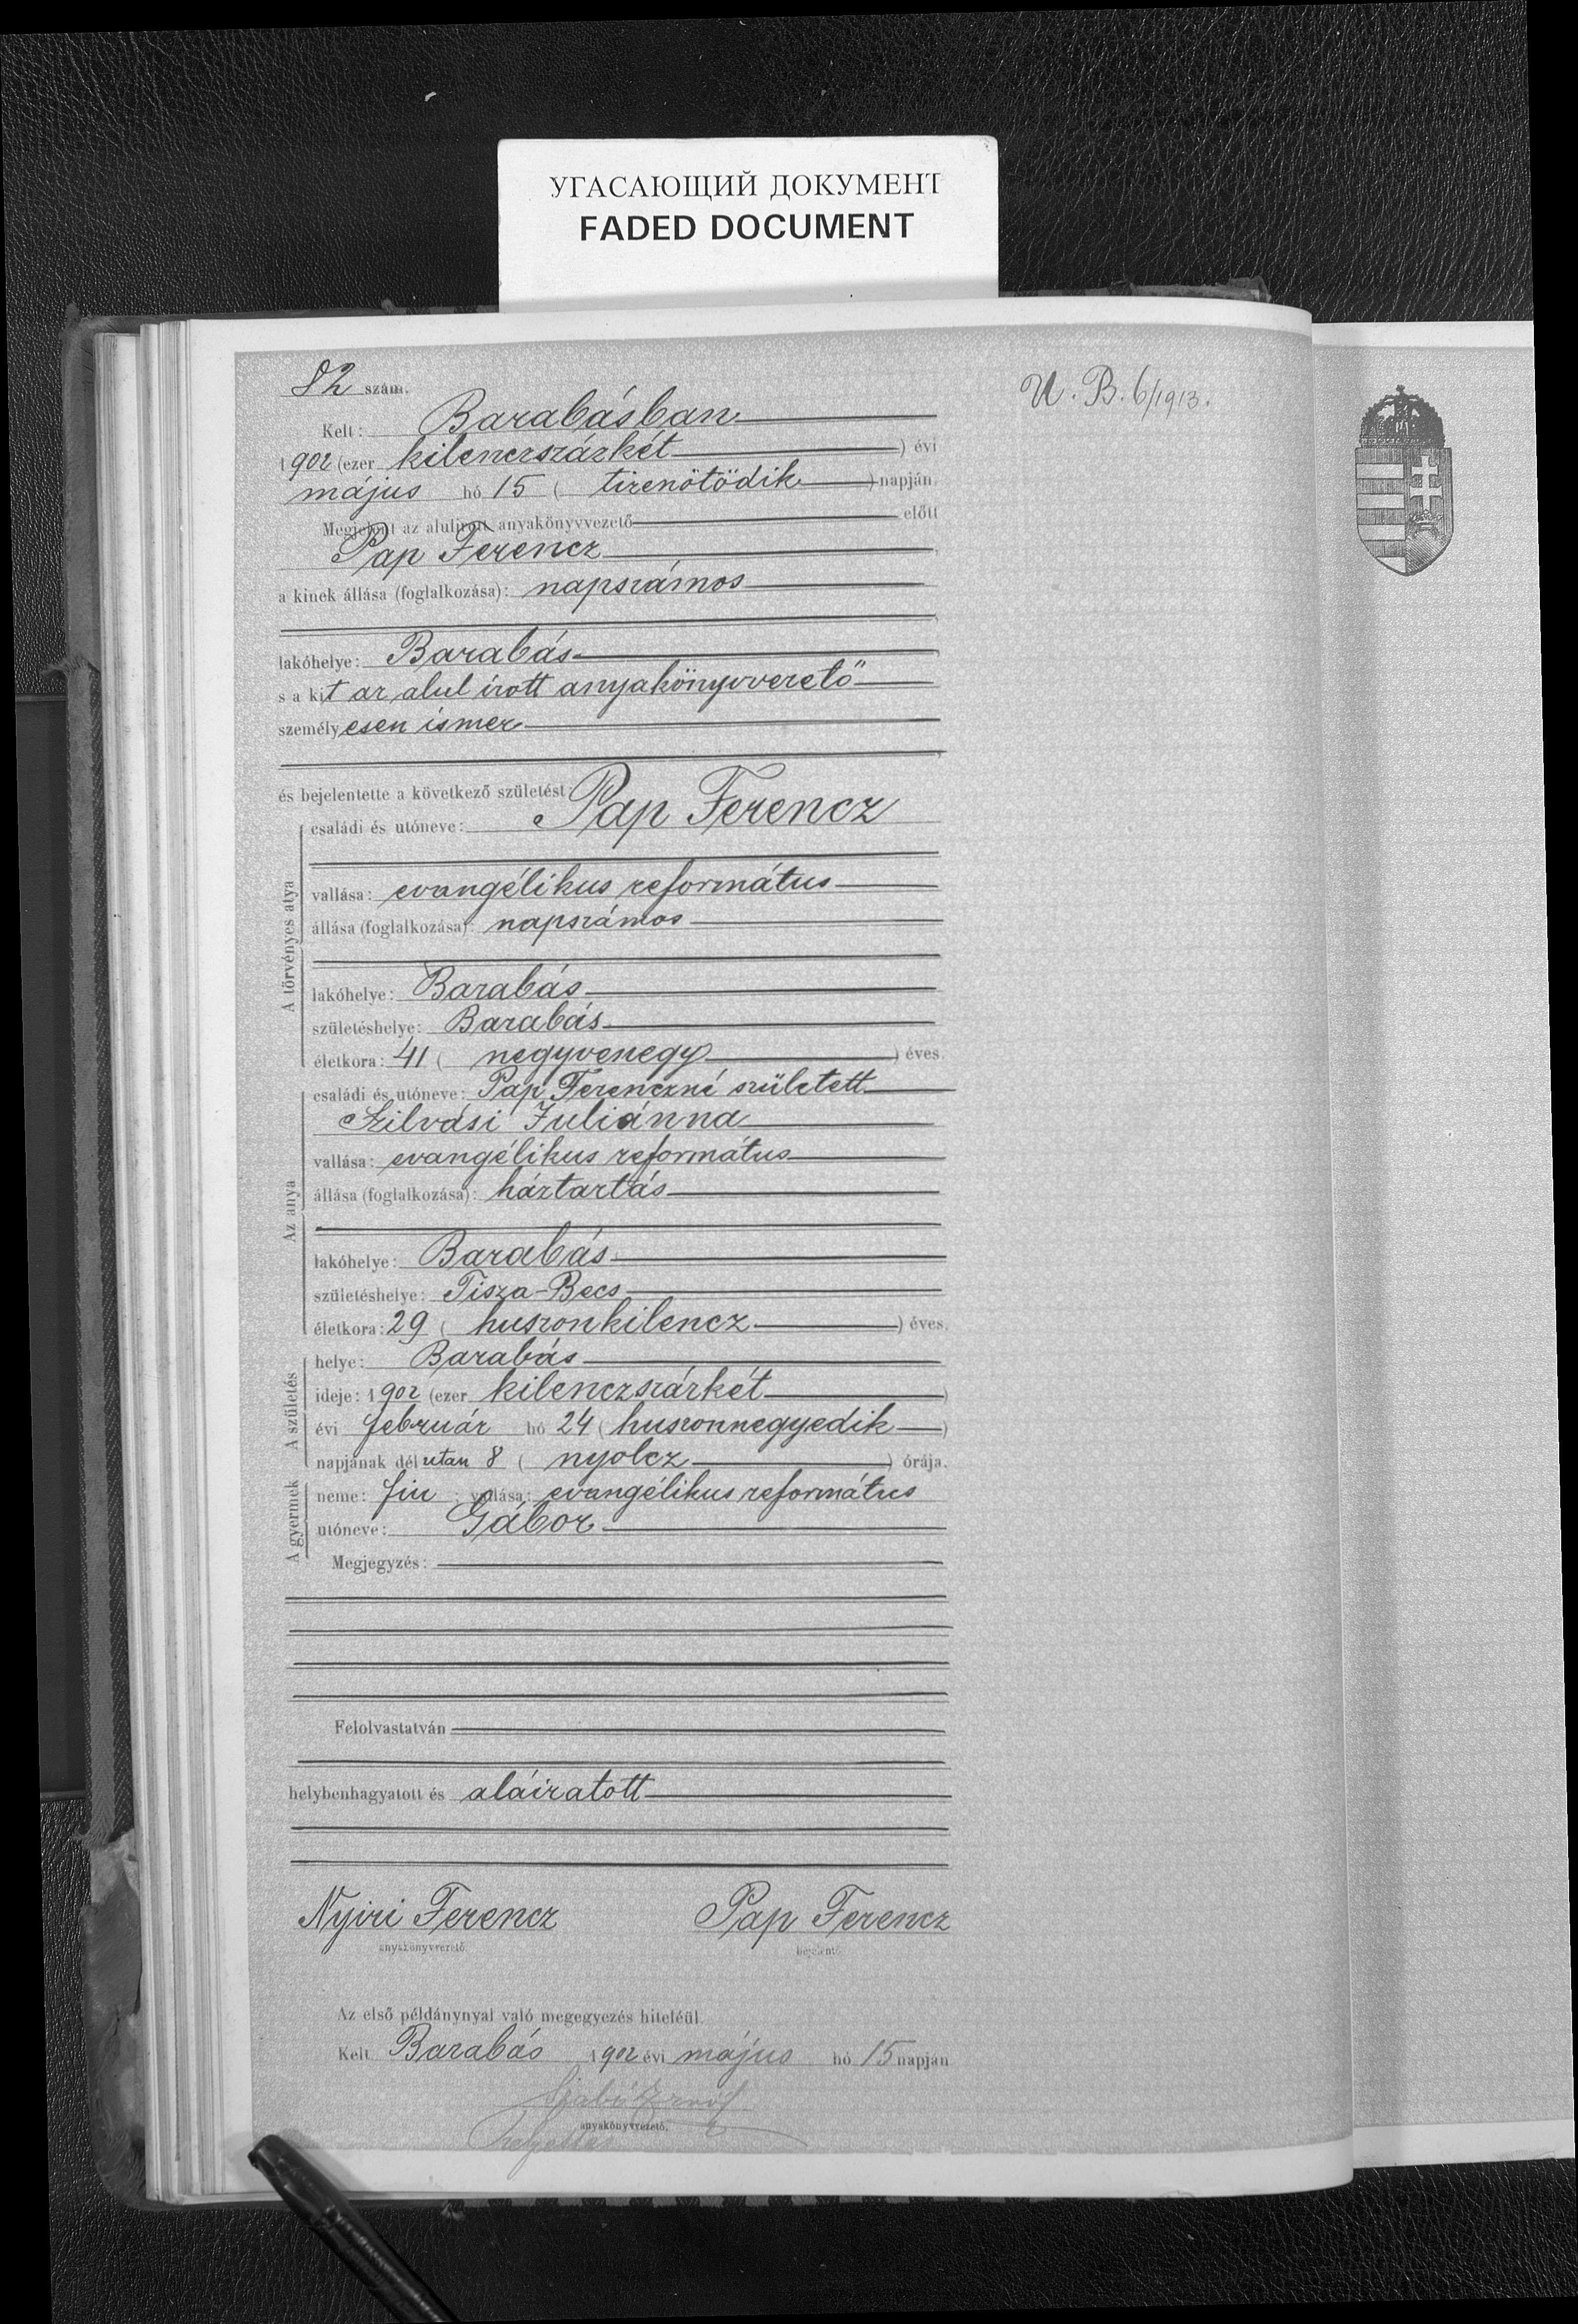 УГАСАЮЩИЙ ДОКУМЕНТ
FADED DOCUMENT
82 szám.
U. B. 6/1913.
Kelt: Barabásban
1902 (ezer kilenczszázkét ) évi
május hó 15 ( tizenötödik ) napján.
Megjelent az alulirott anyakönyvvezető előtt
Pap Ferencz
a kinek állása (foglalkozása): napszámos
lakóhelye: Barabás
s a kit az alul irott anyakönyvvezető
személyesen ismer
és bejelentette a következő születést:
családi és utóneve: Pap Ferencz
A törvényes atya
vallása: evangélikus református
állása (foglalkozása): napszámos
lakóhelye: Barabás
születéshelye: Barabás
életkora: 41 ( negyvenegy ) éves.
Az anya
családi és utóneve: Pap Ferenczné született
Szilvási Juliánna
vallása: evangélikus református
állása (foglalkozása): háztartás
lakóhelye: Barabás
születéshelye: Tisza-Becs
életkora: 29 ( huszonkilencz ) éves.
A születés
helye: Barabás
ideje: 1902 (ezer kilenczszázkét )
évi február hó 24 ( huszonnegyedik )
napjának délután 8 ( nyolcz ) órája.
A gyermek
neme: fiu ; vallása: evangélikus református
utóneve: Gábor
Megjegyzés:
Felolvastatván
helybenhagyatott és aláiratott
Nyiri Ferencz Pap Ferencz
anyakönyvvezető. bejelentő.
Az első példánynyal való megegyezés hiteléül.
Kelt Barabás 1902 évi május hó 15 napján
Szabó Ernő
anyakönyvvezető.
helyettes